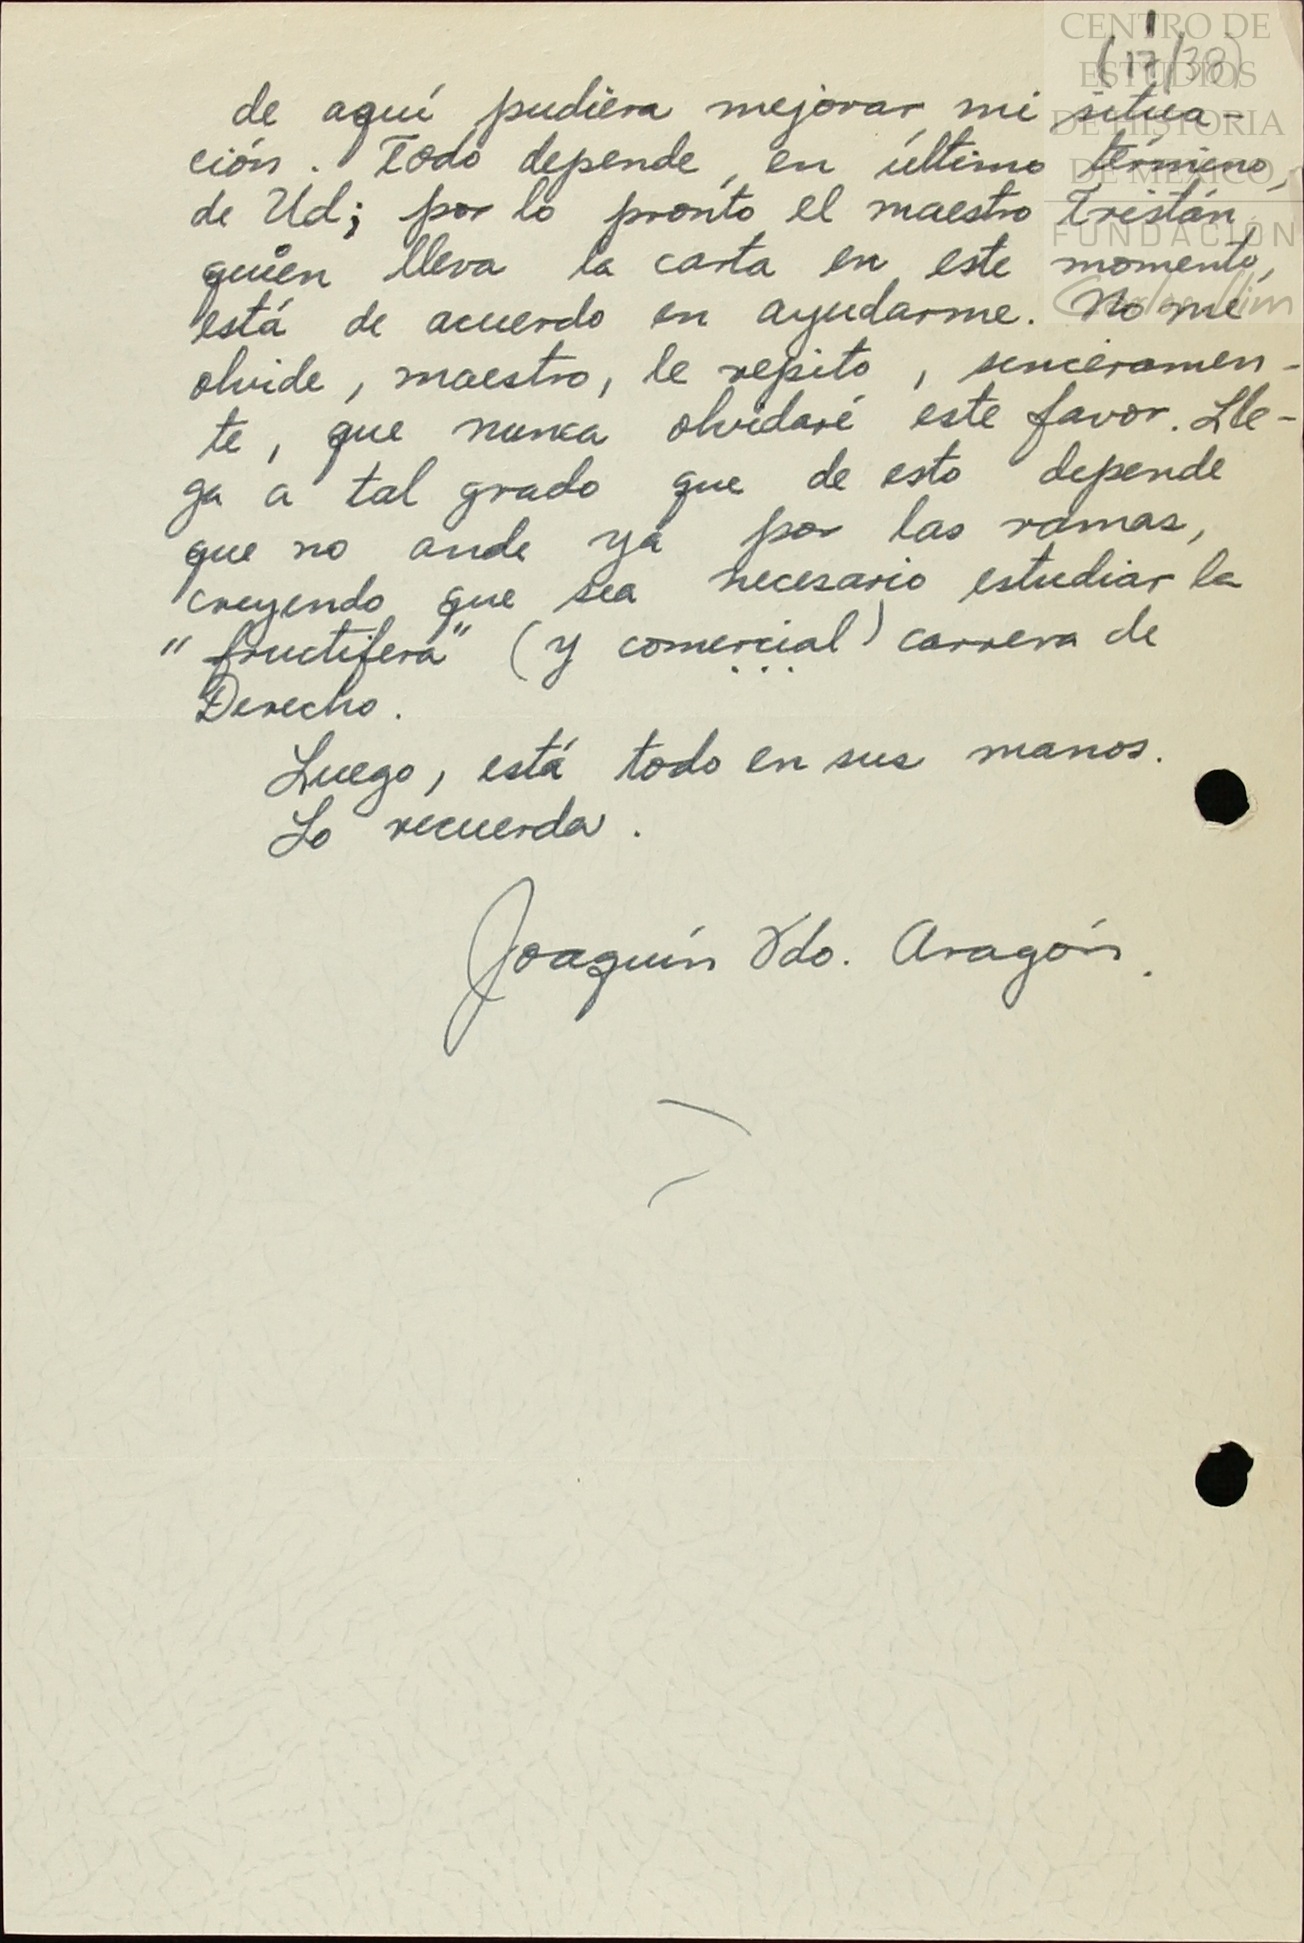 CENTRO DE
ESTUDIOS
DE HISTORIA
DE MÉXICO
FUNDACIÓN
Carlos Slim
(17/38)
de aquí pudiera mejorar mi situa-
ción. Todo depende, en último término,
de Ud; por lo pronto el maestro Tristán,
quien lleva la carta en este momento,
está de acuerdo en ayudarme. No me
olvide, maestro, le repito, sinceramen-
te, que nunca olvidaré este favor. Lle-
ga a tal grado que de esto depende
que no ande ya por las ramas,
creyendo que sea necesario estudiar la
"fructifera" (y comercial) carrera de
Derecho.
Luego, está todo en sus manos.
Lo recuerda.
Joaquín Vdo. Aragón.